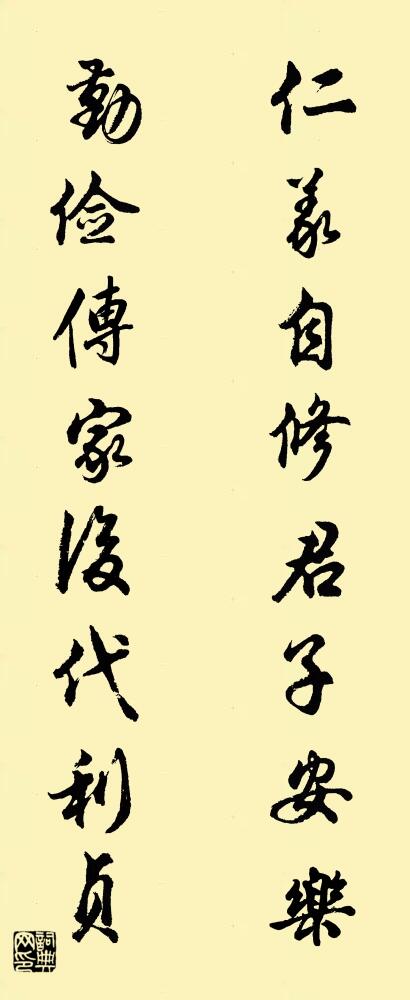 仁義自修君子安樂
勤儉傳家後代利貞
詞典網印